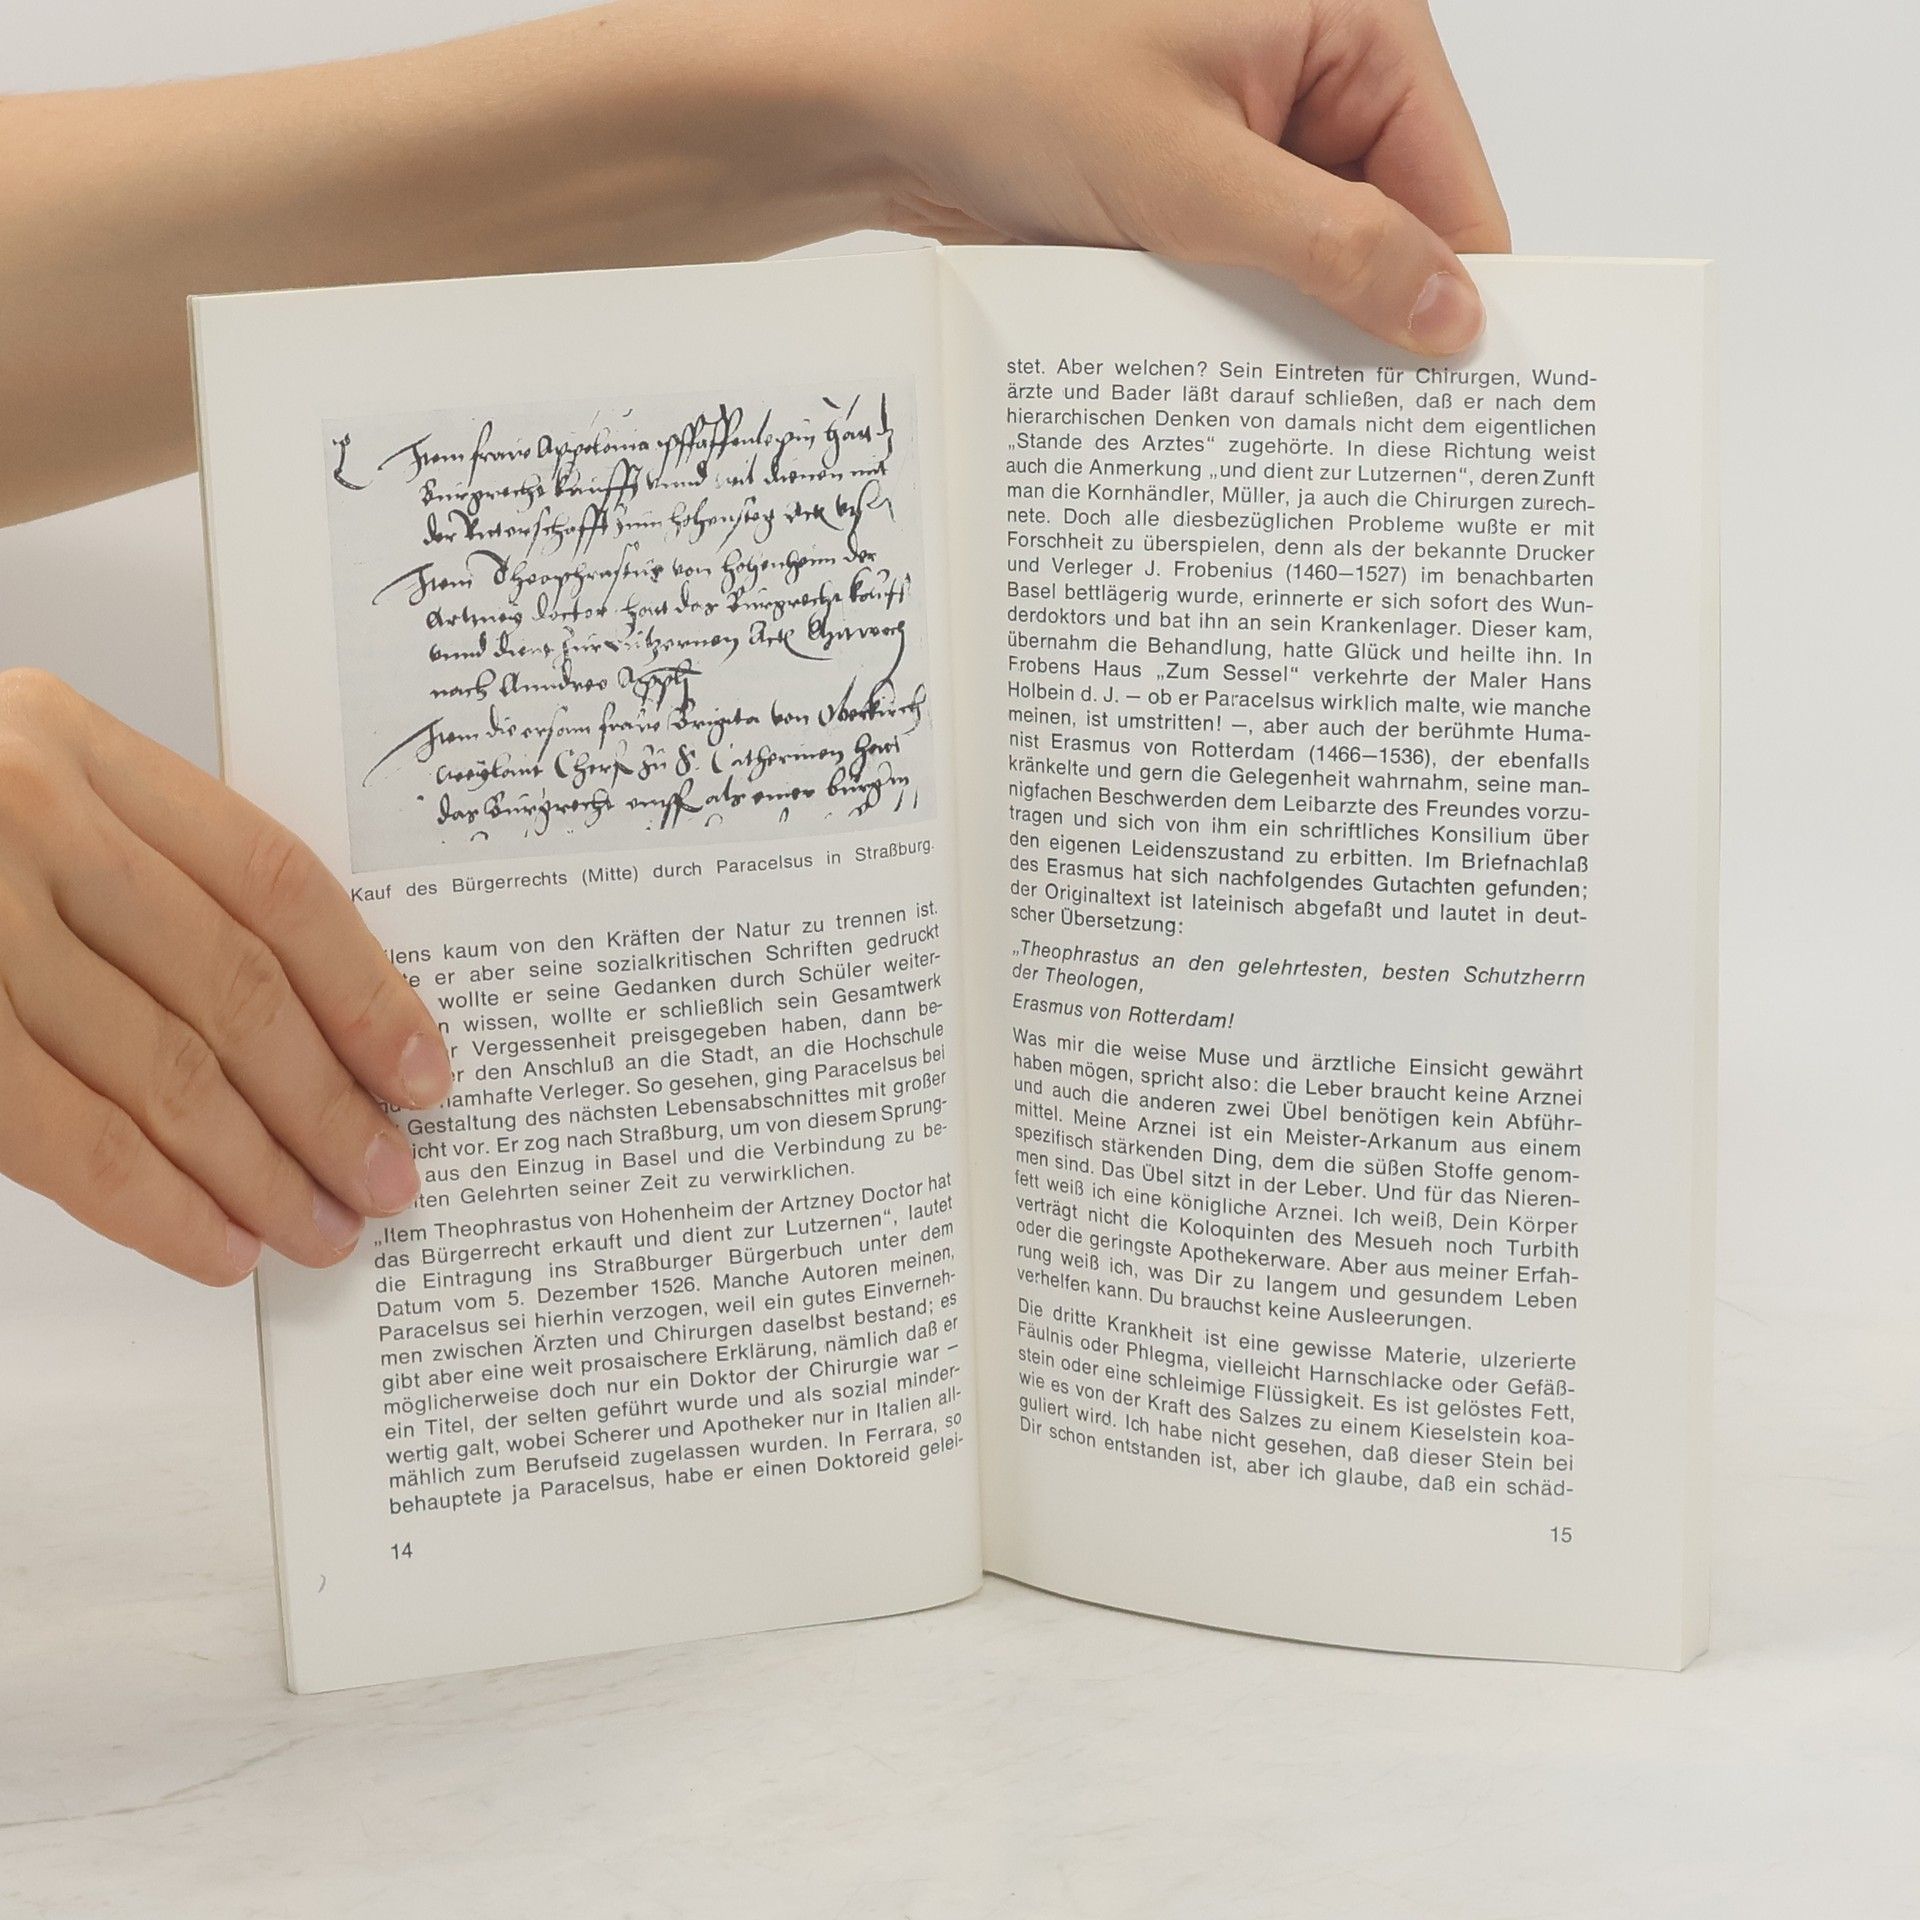 Item frauw Appolonia pfaffenlepin hatt dz
Burgrecht kaufft vnnd wil dienen mit
der zum hohensteg
Item Theophrastus von Hohenheim der
Artzney doctor hatt das Burgrecht kaufft
vnnd dient zur Lutzernen Act Mitwoch
nach Anndree Appli
Item die ersam frauw Brigita von Oberkirch
zu S. Catherinen hatt
das Burgrecht als einer burgerin
Kauf des Bürgerrechts (Mitte) durch Paracelsus in Straßburg.
kaum von den Kräften der Natur zu trennen ist.
er aber seine sozialkritischen Schriften gedruckt
wollte er seine Gedanken durch Schüler weiter-
wissen, wollte er schließlich sein Gesamtwerk
Vergessenheit preisgegeben haben, dann be-
den Anschluß an die Stadt, an die Hochschule
namhafte Verleger. So gesehen, ging Paracelsus bei
Gestaltung des nächsten Lebensabschnittes mit großer
vor. Er zog nach Straßburg, um von diesem Sprung-
aus den Einzug in Basel und die Verbindung zu be-
Gelehrten seiner Zeit zu verwirklichen.
„Item Theophrastus von Hohenheim der Artzney Doctor hat
das Bürgerrecht erkauft und dient zur Lutzernen“, lautet
die Eintragung ins Straßburger Bürgerbuch unter dem
Datum vom 5. Dezember 1526. Manche Autoren meinen,
Paracelsus sei hierhin verzogen, weil ein gutes Einverneh-
men zwischen Ärzten und Chirurgen daselbst bestand; es
gibt aber eine weit prosaischere Erklärung, nämlich daß er
möglicherweise doch nur ein Doktor der Chirurgie war –
ein Titel, der selten geführt wurde und als sozial minder-
wertig galt, wobei Scherer und Apotheker nur in Italien all-
mählich zum Berufseid zugelassen wurden. In Ferrara, so
behauptete ja Paracelsus, habe er einen Doktoreid gelei-
14
stet. Aber welchen? Sein Eintreten für Chirurgen, Wund-
ärzte und Bader läßt darauf schließen, daß er nach dem
hierarchischen Denken von damals nicht dem eigentlichen
„Stande des Arztes“ zugehörte. In diese Richtung weist
auch die Anmerkung „und dient zur Lutzernen“, deren Zunft
man die Kornhändler, Müller, ja auch die Chirurgen zurech-
nete. Doch alle diesbezüglichen Probleme wußte er mit
Forschheit zu überspielen, denn als der bekannte Drucker
und Verleger J. Frobenius (1460–1527) im benachbarten
Basel bettlägerig wurde, erinnerte er sich sofort des Wun-
derdoktors und bat ihn an sein Krankenlager. Dieser kam,
übernahm die Behandlung, hatte Glück und heilte ihn. In
Frobens Haus „Zum Sessel“ verkehrte der Maler Hans
Holbein d. J. – ob er Paracelsus wirklich malte, wie manche
meinen, ist umstritten! –, aber auch der berühmte Huma-
nist Erasmus von Rotterdam (1466–1536), der ebenfalls
kränkelte und gern die Gelegenheit wahrnahm, seine man-
nigfachen Beschwerden dem Leibarzte des Freundes vorzu-
tragen und sich von ihm ein schriftliches Konsilium über
den eigenen Leidenszustand zu erbitten. Im Briefnachlaß
des Erasmus hat sich nachfolgendes Gutachten gefunden;
der Originaltext ist lateinisch abgefaßt und lautet in deut-
scher Übersetzung:
„Theophrastus an den gelehrtesten, besten Schutzherrn
der Theologen,
Erasmus von Rotterdam!
Was mir die weise Muse und ärztliche Einsicht gewährt
haben mögen, spricht also: die Leber braucht keine Arznei
und auch die anderen zwei Übel benötigen kein Abführ-
mittel. Meine Arznei ist ein Meister-Arkanum aus einem
spezifisch stärkenden Ding, dem die süßen Stoffe genom-
men sind. Das Übel sitzt in der Leber. Und für das Nieren-
fett weiß ich eine königliche Arznei. Ich weiß, Dein Körper
verträgt nicht die Koloquinten des Mesueh noch Turbith
oder die geringste Apothekerware. Aber aus meiner Erfah-
rung weiß ich, was Dir zu langem und gesundem Leben
verhelfen kann. Du brauchst keine Ausleerungen.
Die dritte Krankheit ist eine gewisse Materie, ulzerierte
Fäulnis oder Phlegma, vielleicht Harnschlacke oder Gefäß-
stein oder eine schleimige Flüssigkeit. Es ist gelöstes Fett,
wie es von der Kraft des Salzes zu einem Kieselstein koa-
guliert wird. Ich habe nicht gesehen, daß dieser Stein bei
Dir schon entstanden ist, aber ich glaube, daß ein schäd-
15